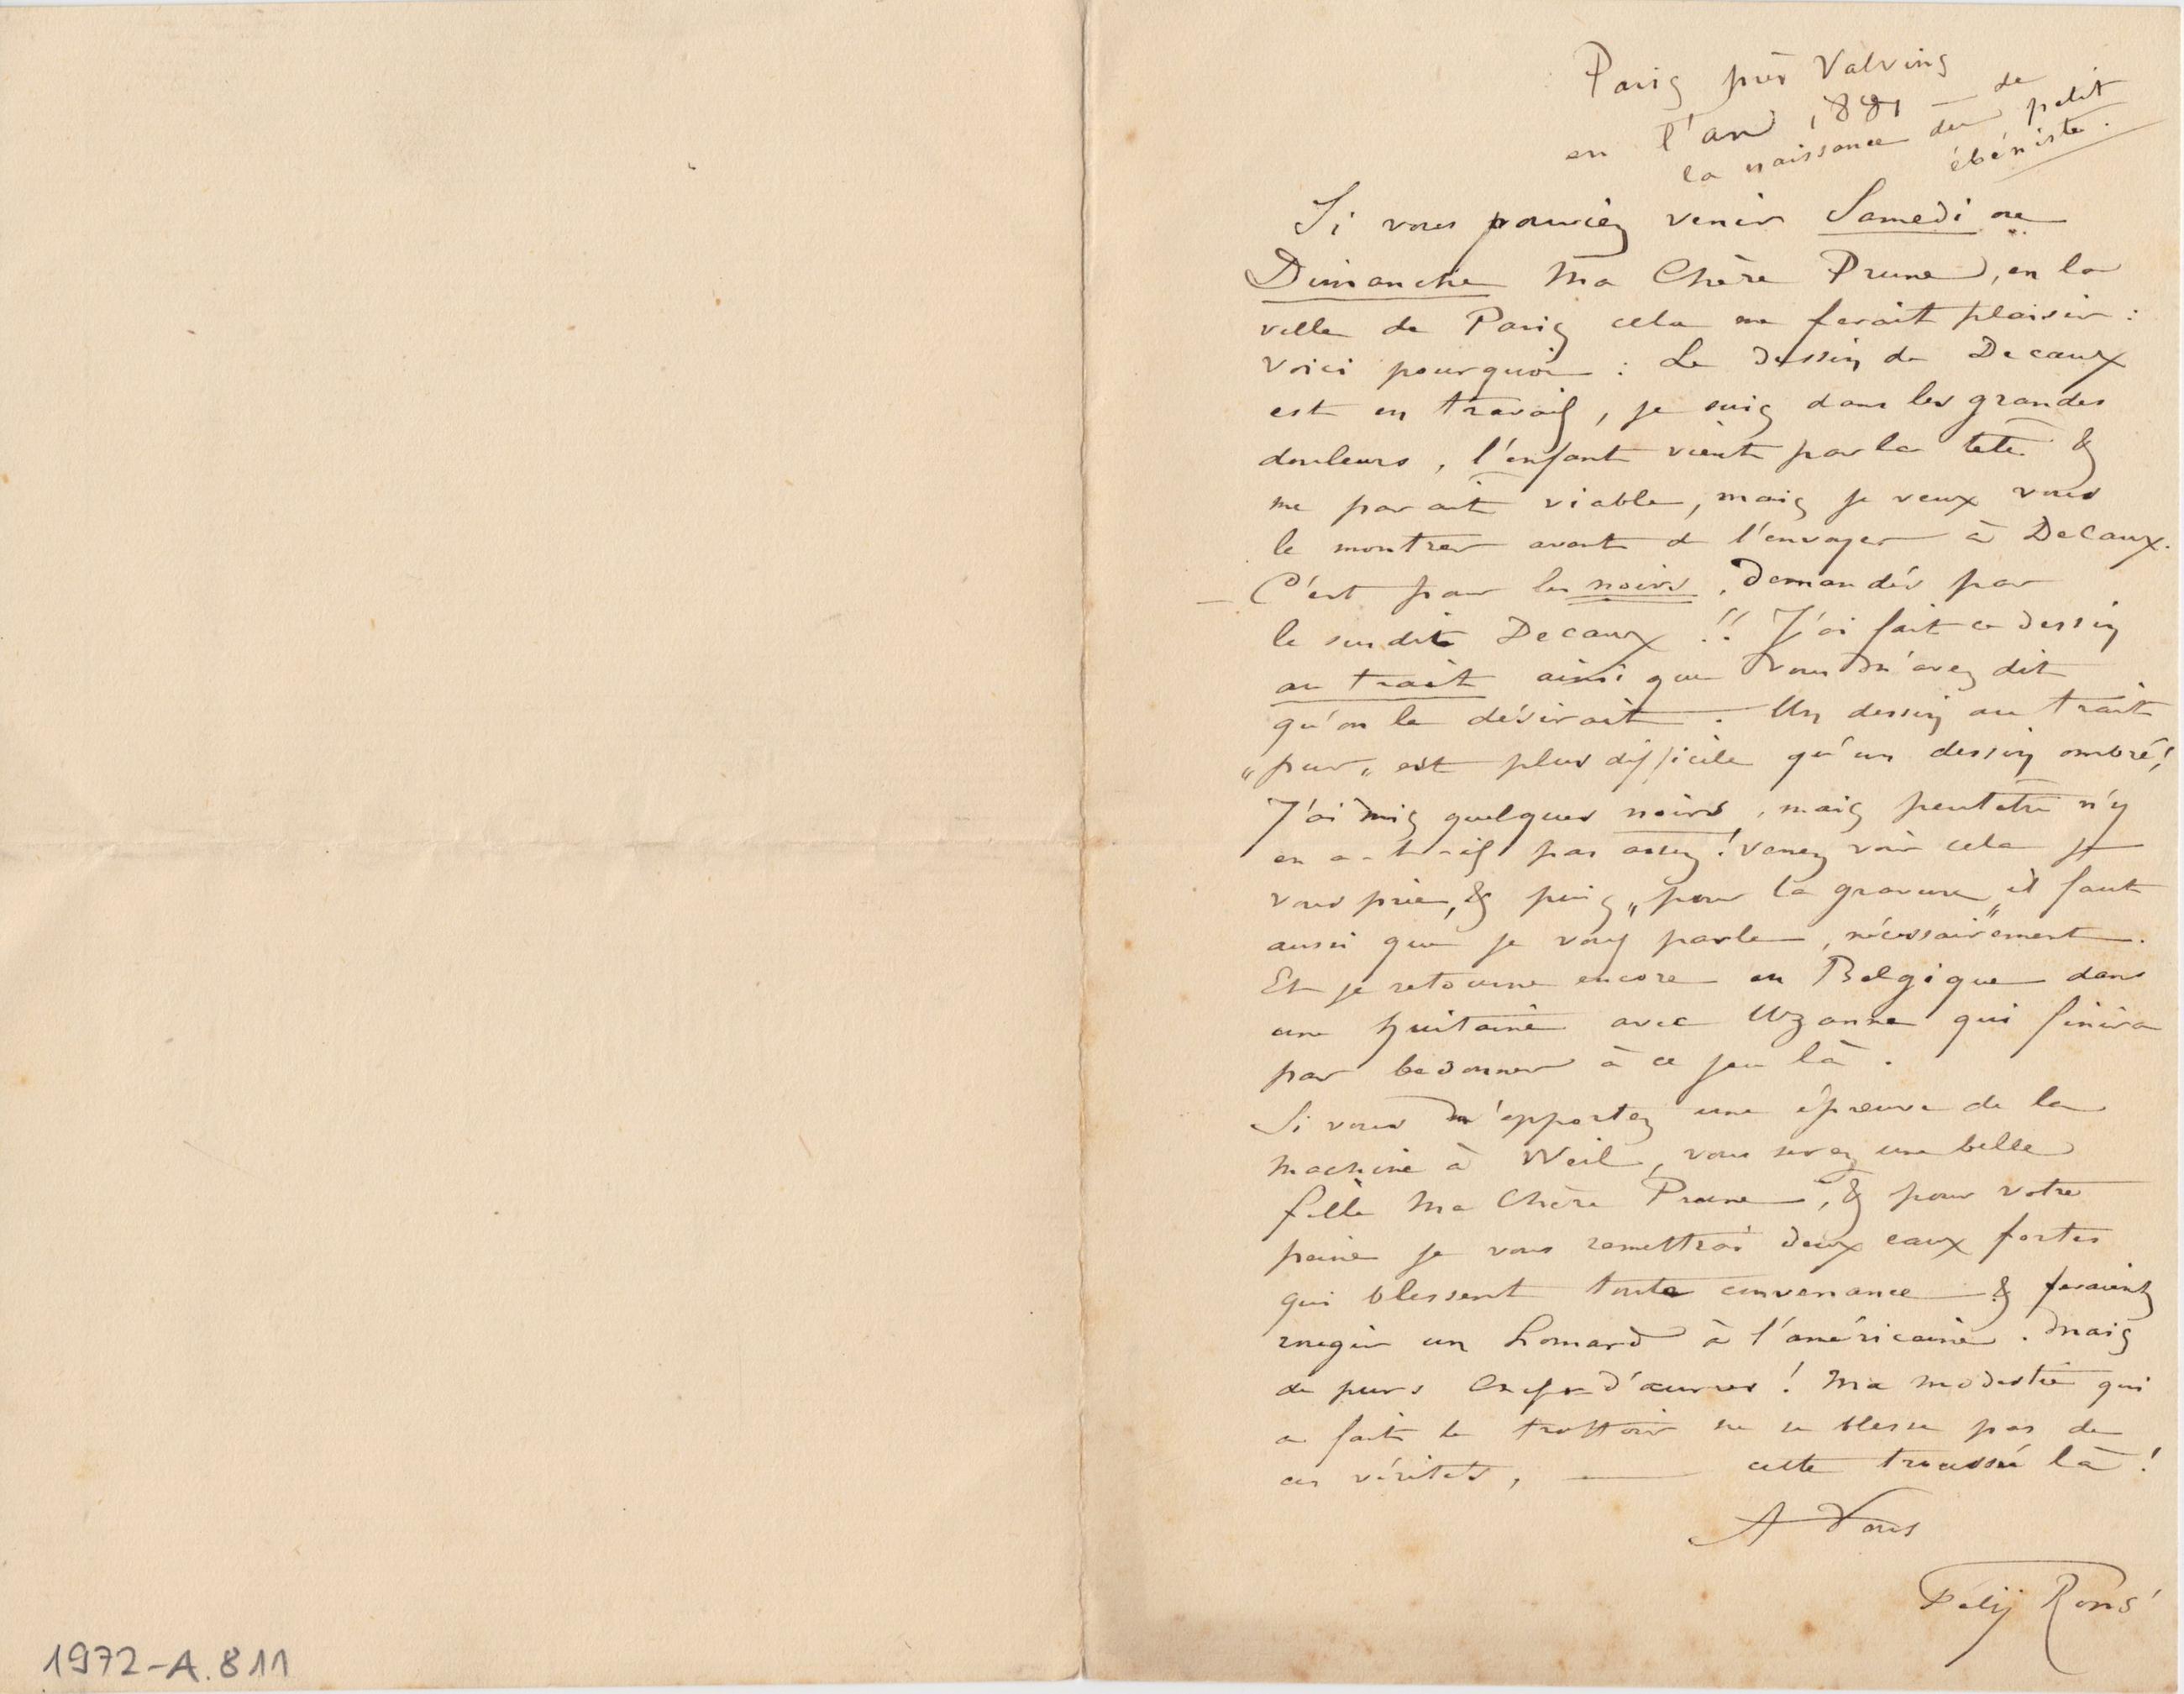 Paris près Valvins
en l'an 1881 — de
la naissance du petit
ébéniste.
Si vous pouviez venir Samedi ou
Dimanche Ma Chère Prune, en la
ville de Paris cela me ferait plaisir :
Voici pourquoi : Le dessin de Decaux
est en travail, je suis dans les grandes
douleurs, l'enfant vient par la tête &
me parait viable, mais je veux vous
le montrer avant de l'envoyer à Decaux.
– C'est pour les noirs, demandés par
le susdit Decaux !! J'ai fait ce dessin
au trait ainsi que vous m'avez dit
qu'on le désirait. Un dessin au trait
"pur" est plus difficile qu'un dessin ombré !
J'ai mis quelques noirs, mais peutêtre n'y
en a-t-il pas assez ! Venez voir cela je
vous prie, & puis "pour la gravure" il faut
aussi que je vous parle, nécessairement.
Et je retourne encore en Belgique dans
une huitaine avec Uzanne qui finira
par bedonner à ce jeu là.
Si vous m'apportez une épreuve de la
machine à Weil, vous serez une belle
fille Ma Chère Prune, & pour votre
peine je vous remettrai deux eaux fortes
qui blessent toute convenance & feraient
rougir un homard à l'américaine. Mais
de purs chefs d'œuvres ! Ma modestie qui
a fait le trottoir ne se blesse pas de
ces vérités, — cette troussée là !
A Vous
Fély Rops
1972-A.811